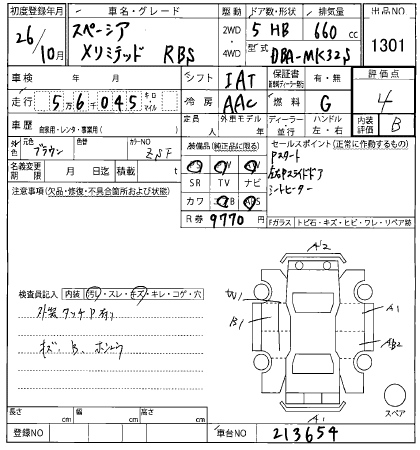 初度登録年月
車名・グレード
駆動
ドア数・形状
排気量
出品NO
26/10月
スペーシア
XリミテッドRBS
2WD
4WD
5 HB
660 cc
型式
DBA-MK32S
1301
車検 年 月
シフト
IAT
保証書
有・無
評価点
4
走行
56,045
キロ・マイル
冷房
AAC
燃料
G
車歴
自家用・レンタ・事業用( )
定員
人
外車モデル
年
ディーラー
並行
ハンドル
左・右
内装評価
B
外色
元色
ブラウン
色替
カラーNO
ZSF
装備品(純正品に限る)
セールスポイント(正常に作動するもの)
PS PW AW
Pスタート
名義変更期限
月 日迄
積載
t
SR TV ナビ
左右Pスライドドア
シートヒーター
注意事項(欠品・修復・不具合箇所および状態)
カワ エアB ABS
R券
9770円
Fガラス
トビ石・キズ・ヒビ・ワレ・リペア跡
A2
検査員記入
内装
汚レ・スレ・キズ・キレ・コゲ・穴
W1
B1
A1
外装タッチP有り
キズ、B、
AB2
スペア
A1
長さ
cm
幅
cm
高さ
cm
登録NO
車台NO
213654